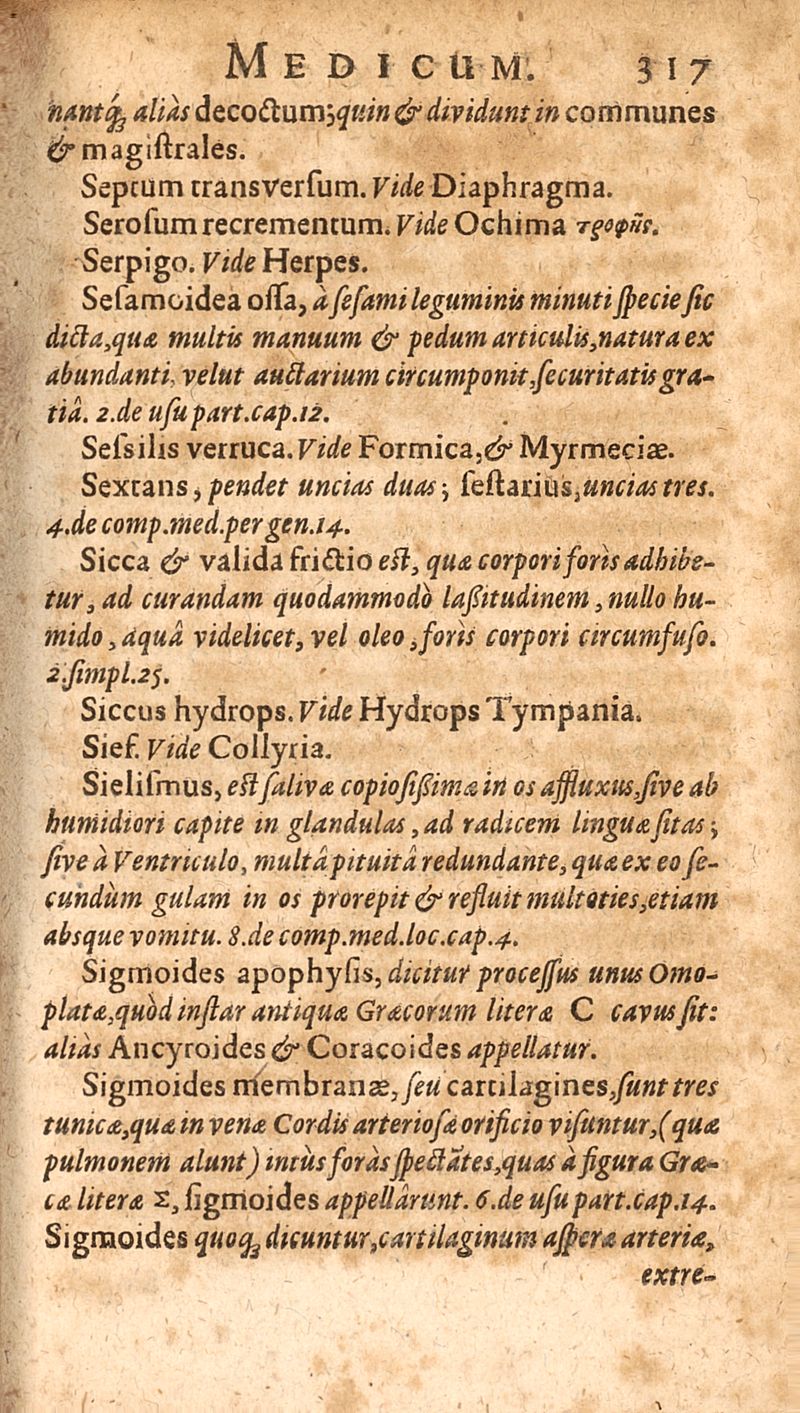 MEDICUM. 317
nantq́ꝫ aliàs decoctum; quin & dividunt in communes
& magiſtrales.
Septum transverſum. Vide Diaphragma.
Seroſum recrementum. Vide Ochima τροφῆς.
Serpigo. Vide Herpes.
Seſamoidea oſſa, à ſeſami leguminis minuti ſpecie ſic
dicta, quæ multis manuum & pedum articulis, natura ex
abundanti, velut auctarium circumponit, ſecuritatis gra-
tiâ. 2. de uſu part. cap. 12.
Seſsilis verruca. Vide Formica, & Myrmeciæ.
Sextans, pendet uncias duas; ſeſtarius, uncias tres.
4. de comp. med. per gen. 14.
Sicca & valida frictio eſt, quæ corpori forìs adhibe-
tur, ad curandam quodammodò laßitudinem, nullo hu-
mido, aquâ videlicet, vel oleo, forìs corpori circumfuſo.
2. ſimpl. 25.
Siccus hydrops. Vide Hydrops Tympania.
Sief. Vide Collyria.
Sieliſmus, eſt ſalivæ copioſißimæ in os affluxus, ſive ab
humidiori capite in glandulas, ad radicem linguæ ſitas;
ſive à Ventriculo, multâ pituitâ redundante, quæ ex eo ſe-
cundùm gulam in os prorepit & refluit multoties, etiam
absque vomitu. 8. de comp. med. loc. cap. 4.
Sigmoides apophyſis, dicitur proceſſus unus Omo-
platæ, quòd inſtar antiquæ Græcorum literæ C cavus ſit:
aliàs Ancyroides & Coracoides appellatur.
Sigmoides membranæ, ſeu cartilagines, ſunt tres
tunicæ, quæ in venæ Cordis arterioſæ orificio viſuntur, (quæ
pulmonem alunt) intùs foràs ſpectātes, quas à figura Græ-
cæ literæ Σ, ſigmoides appellârunt. 6. de uſu part. cap. 14.
Sigmoides quoqꝫ dicuntur, cartilaginum aſperæ arteriæ,
extre-